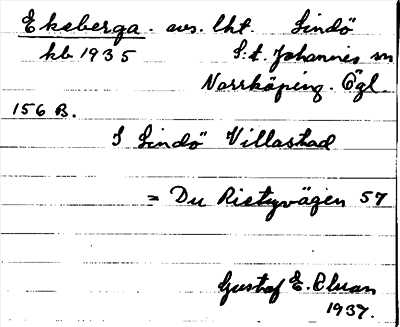 Ekeberga. avs. lht. Lindö
kb 1935 S:t Johannis sn
Norrköping. Ögl.
156 B.
I Lindö Villastad
= Du Ristyvägen 57
Gustaf E.
1937.